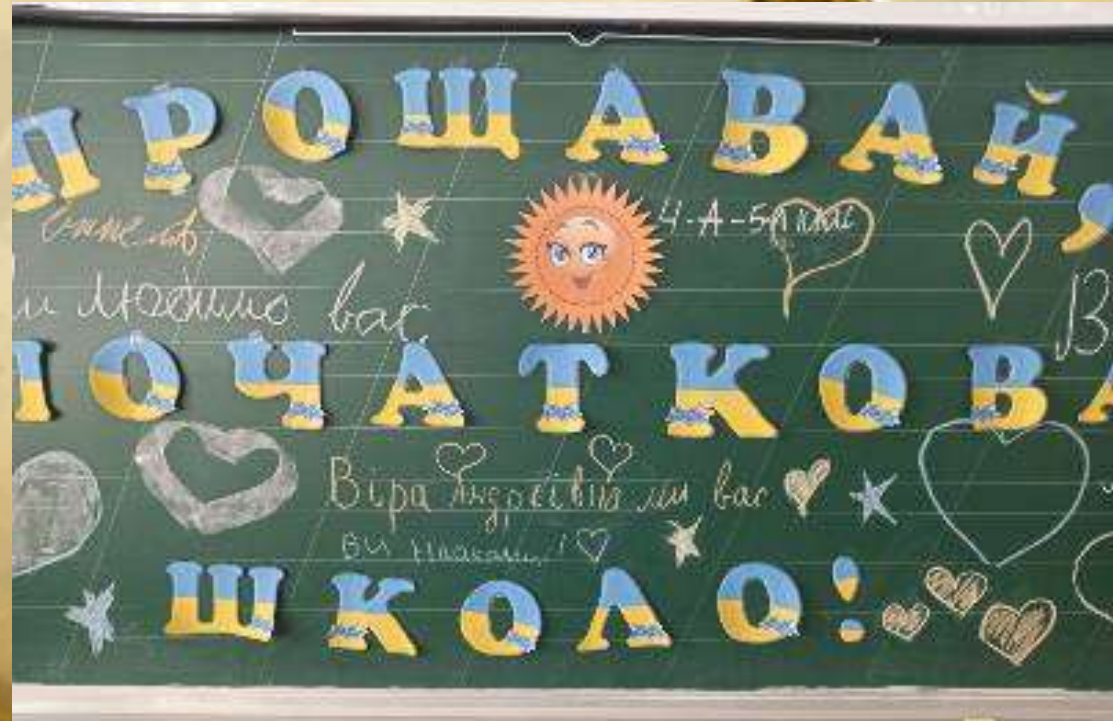 ПРОЩАВАЙ,
4-А-5А клас
ми любимо вас
ПОЧАТКОВА
Віра Андреївна ми вас
ви
ШКОЛО!